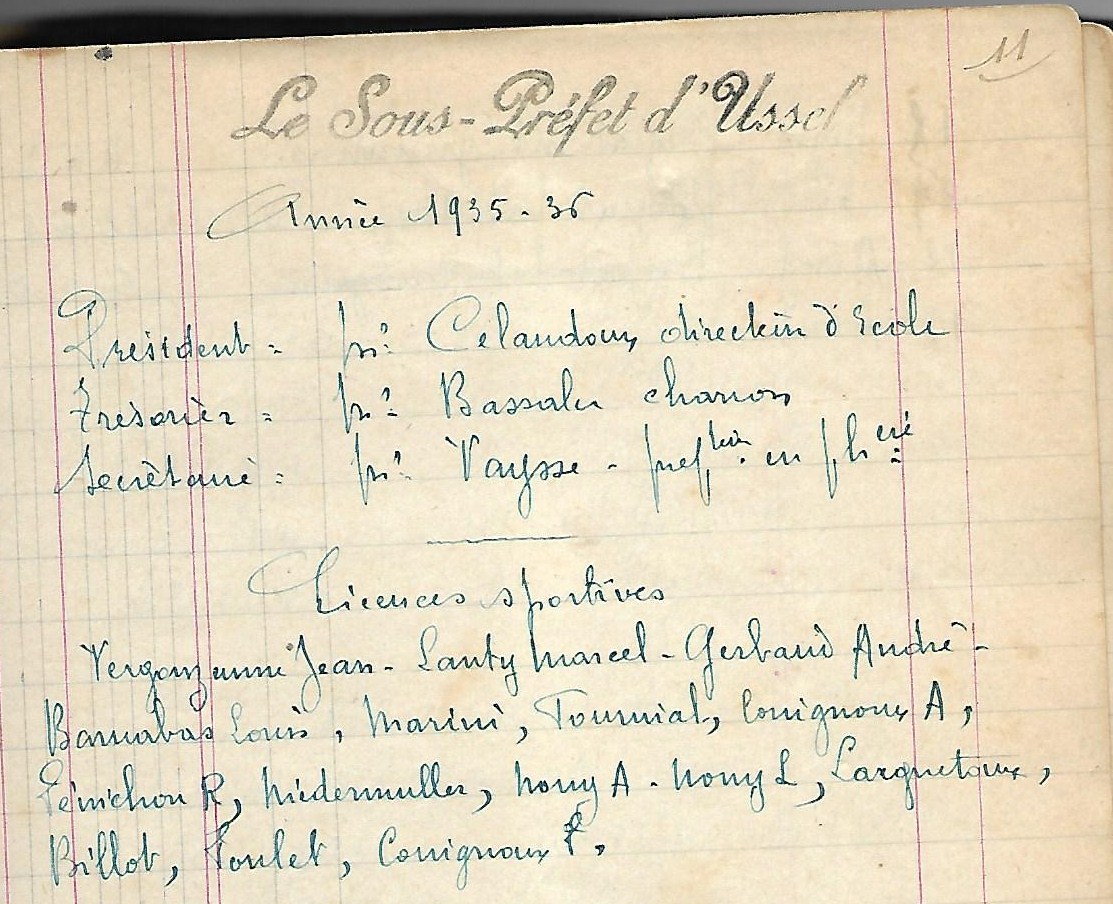 11
Le Sous-Préfet d'Ussel
Année 1935-36
Président = Mr Celaudoux directeur d'Ecole
Trésorier = Mr Bassaler charron
Secrétaire = Mr Vaysse - en phcie
Licences sportives
Vergonzeanne Jean - Lanty Marcel - Gerbaud André -
Barnabas Louis, Marini, Tournial, Couignoux A,
Peinichou R, Niedermuller, Nony A - Nony L, Larguetoux,
Billot, Poulet, Couignoux P,